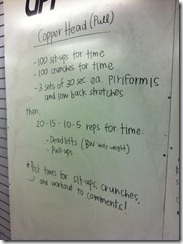 Copper Head (Pull)
- 100 sit-ups for time
- 100 crunches for time
- 3 sets of 30 sec ea. piriformis
and low back stretches
Then,
20-15-10-5 reps for time:
- Deadlifts (BW weight)
- Pull-ups
*Post times for sit-ups, crunches,
workout to comments!